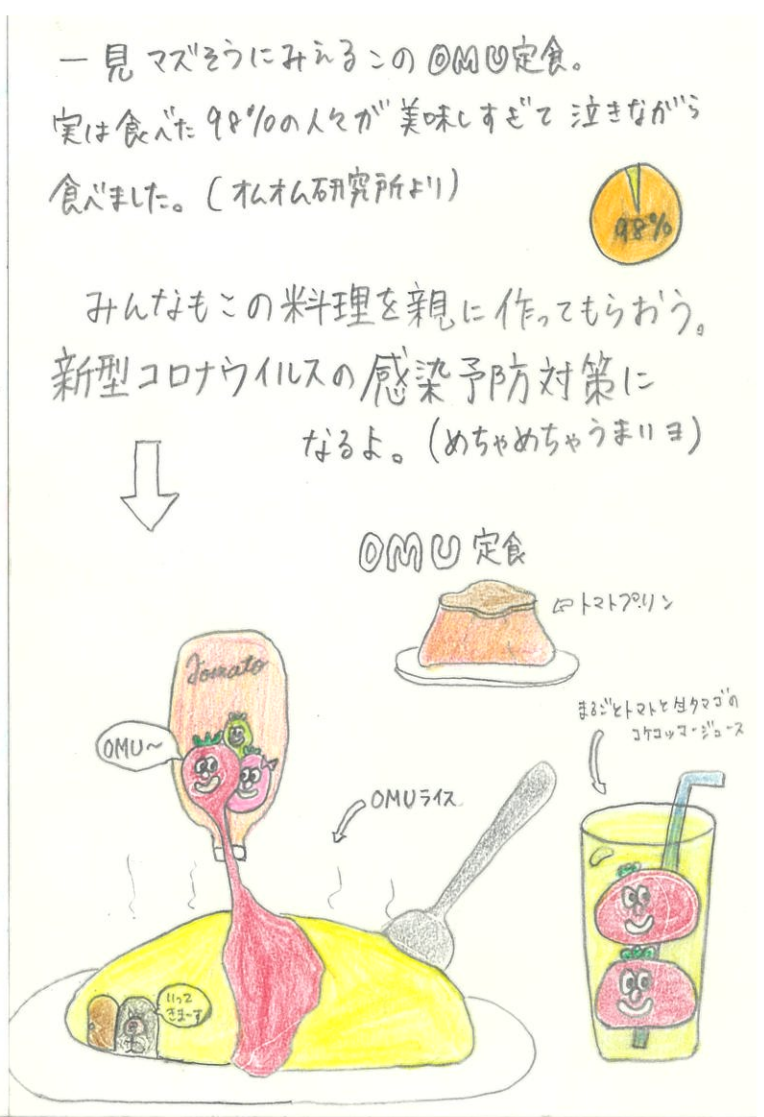 一見マズそうにみえるこのOMU定食。
実は食べた98%の人々が美味しすぎて泣きながら
食べました。(オムオム研究所より)
98%
みんなもこの料理を親に作ってもらおう。
新型コロナウイルスの感染予防対策に
なるよ。(めちゃめちゃうまいヨ)
OMU定食
トマトプリン
Tomato
まるごとトマトと生タマゴの
コケコッコージュース
OMU〜
OMUライス
いって
きまーす